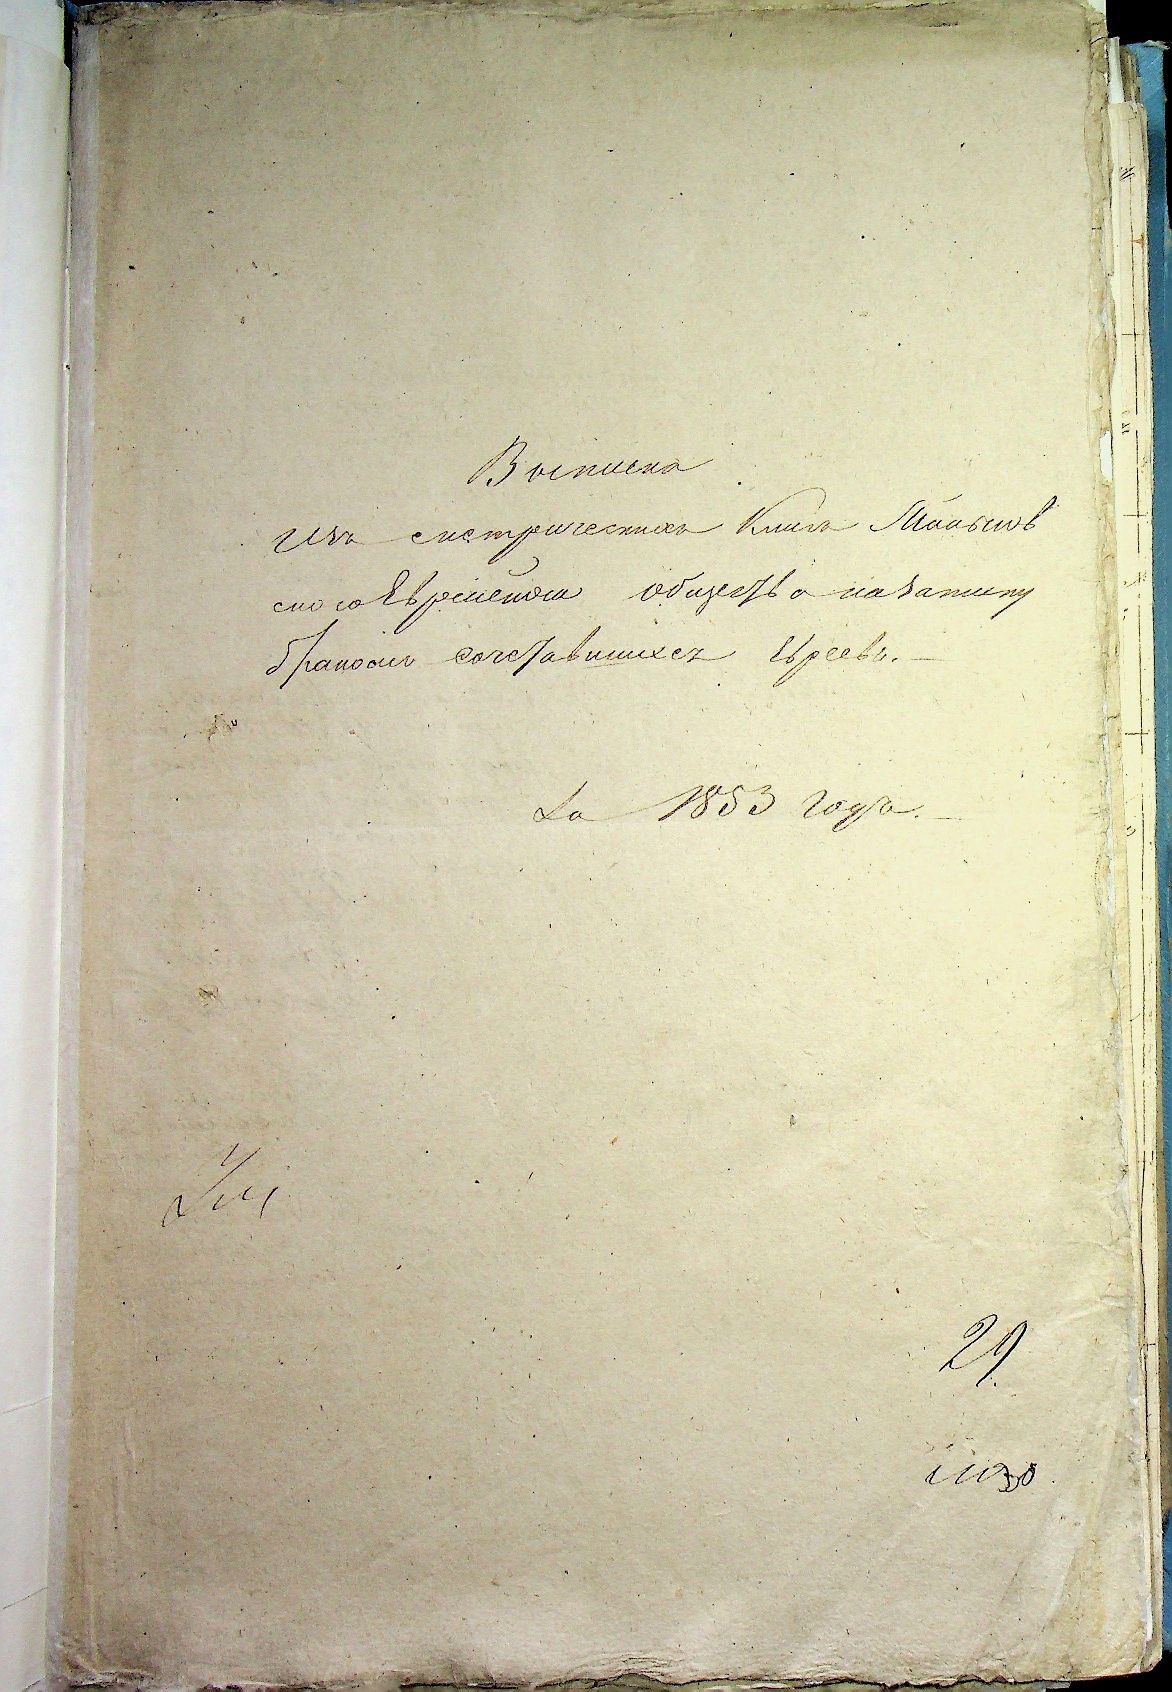 Выписка
изъ метрическихъ Книгъ
скаго Еврейского общества на записку
бракомъ сочетавшихся Евреевъ.—
За 1853 годъ.—
29
30